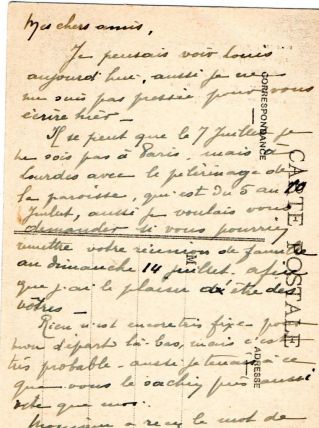 Mes chers amis,
Je pensais voir Louis
aujourd'hui, aussi je
me suis pas pressée pour vous
écrire hier -
Il se peut que le 7 Juillet je
ne sois pas à Paris, mais à
Lourdes avec le pèlerinage de
la paroisse, qui est du 5 au 10
Juillet, aussi je voulais vous
demander si vous pourriez
remettre votre réunion de famille
au dimanche 14 juillet. afin
que j'ai le plaisir d'être des
vôtres -
Rien n'est encore très fixe pour
mon départ là-bas, mais c'est
très probable - aussi je tenais à ce
que vous le sachiez aussi
vite que moi.
a reçu le mot de
CORRESPONDANCE
CARTE POSTALE
ADRESSE